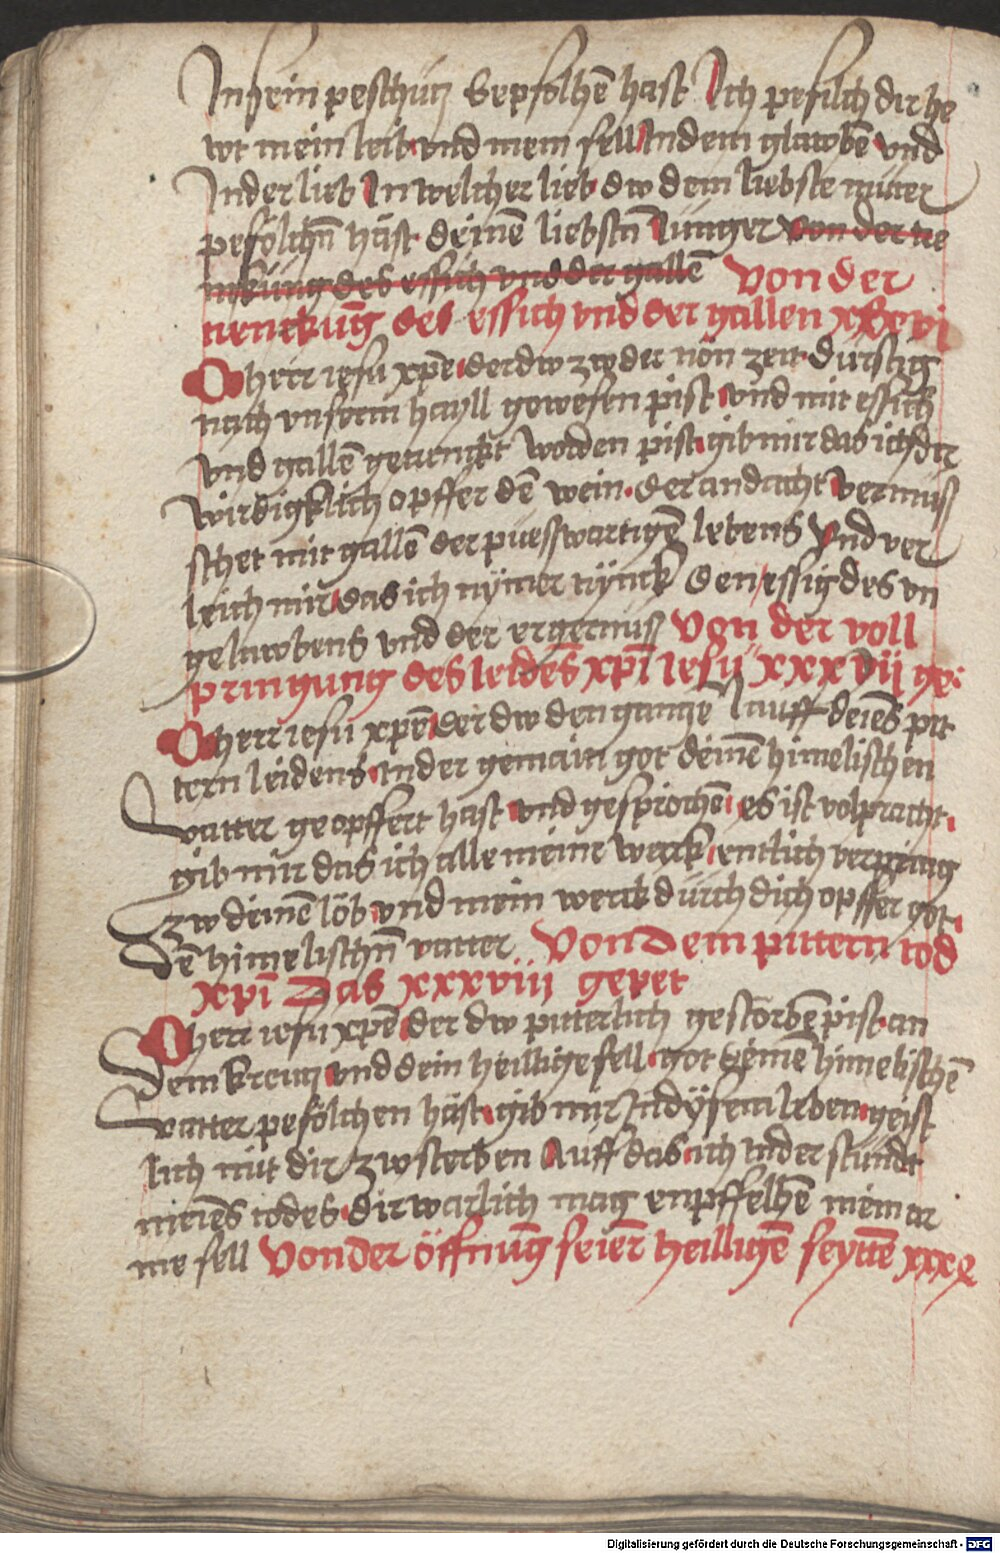 In sein peschutz Gepfolhē hast Ich pefilch dir he
wt mein leib vnd mein sell In dem glawbē vnd
In der lieb In welcher lieb dw dein liebste mutter
pefolchn̄ hast deinē liebstn̄ Junger von der tre
nckung des essich vnd der gallē von der
trenckūg des essich vnd der gallen xxxvi
O herr iesu xpē der dw zw der nōn zeit durstig
nach vnserm hayll gewesen pist vnd mit essich
vnd gallē getrenckt worden pist gib mir das ich dir
wirdigklich opffer dē wein der andacht vermis
schet mit gallē der puesswartigē lebens vnd ver
leich mir das ich nymer trynck den essig des vn
gelawbens vnd der ergernuss Von der voll
pringung des leidēs xp̄i iesu xxxvii ge
O herr iesu xpē der dw den gantze lauff deiēs pit
tern leidens in der gemain got deinē himelischen
vatter geopffert hast vnd gesprochē es ist volpracht
gib mir das ich alle meine werck entlich verpring
zw deinē lob vnd mein werck durch dich opffer got
dē himelischn̄ vatter Von dem pittern tod
xp̄i Das xxxviii gepet
O herr iesu xpē der dw piterlich gestorbē pist an
dem kreutz vnd dein heillige sell got deinē himelischē
vatter pefolchen hast gib mir In dysem leben geist
lich mit dir zw sterben Auff das ich In der stundt
meiēs todes dir warlich mag enpffelhē mein ar
me sell Von der öffnūg seiēr heilligē seyttē xxxix